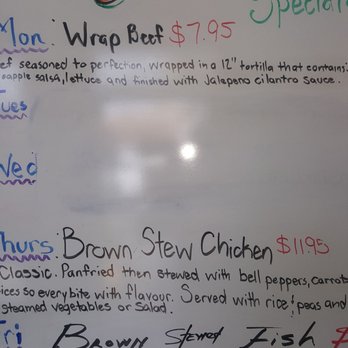 Special
Mon: Wrap Beef $7.95
ef seasoned to perfection, wrapped in a 12" tortilla that contains
eapple salsa, lettuce and finished with Jalepeno cilantro sauce.
Tues
Wed
Thurs: Brown Stew Chicken $11.95
Classic. Panfried then stewed with bell peppers, Carrot
ices so every bite with flavour. Served with rice! peas and
steamed vegetables or Salad.
Fri Brown Stewed Fish